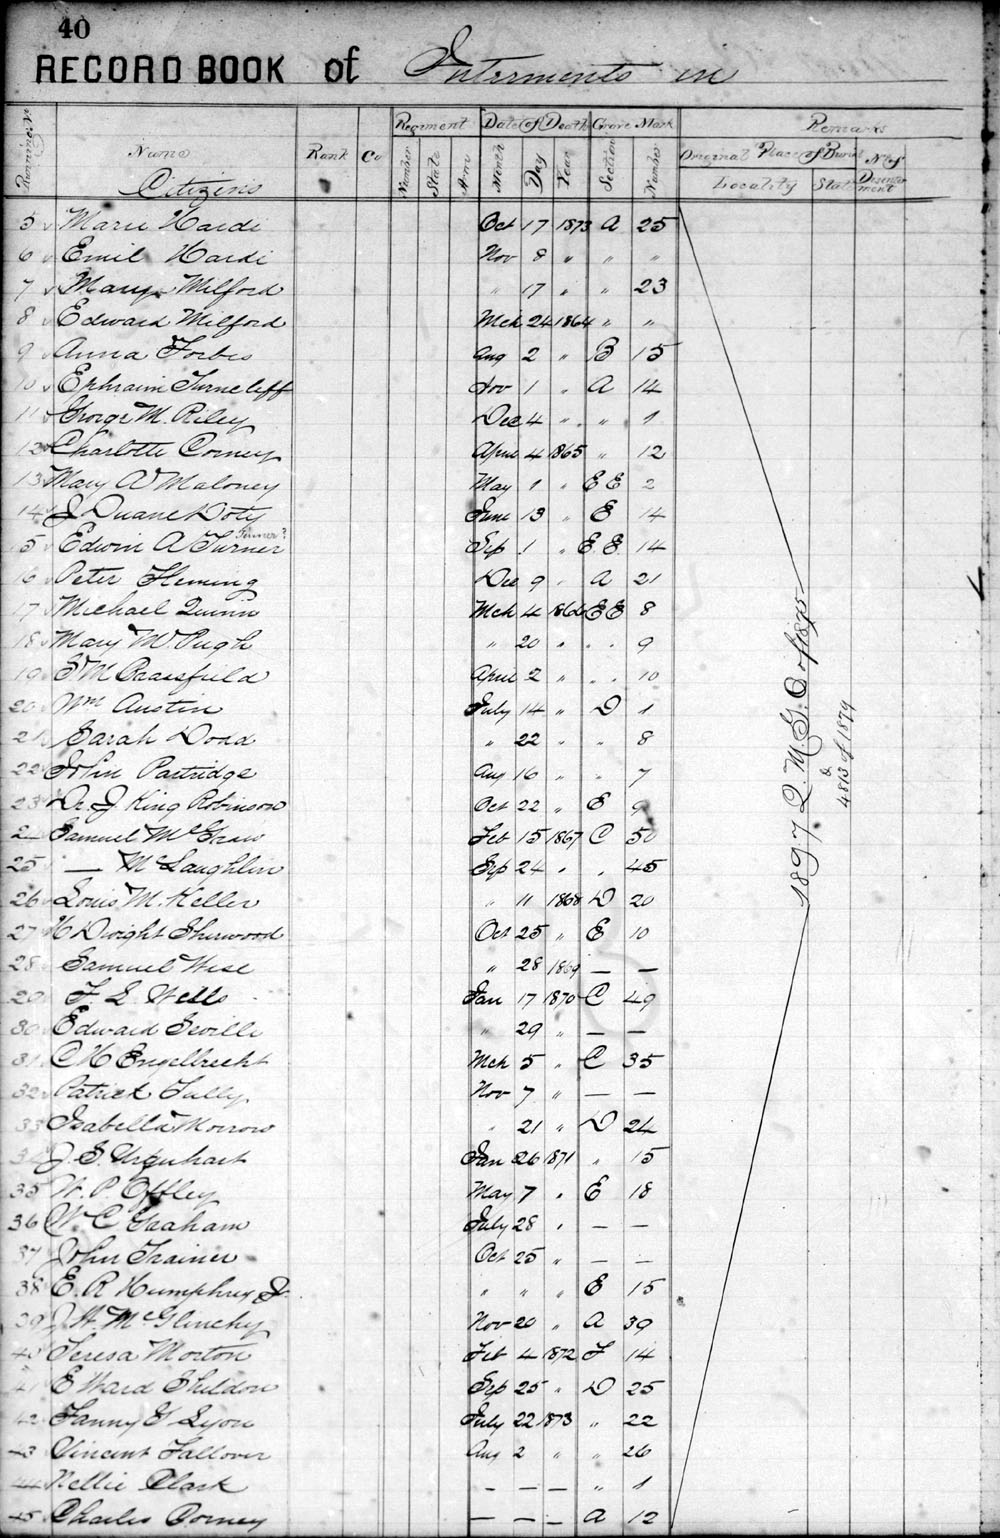 40
RECORD BOOK of Interments in
Name Rank Co Regiment Date of Death Grave Mark Remarks
Number State Arm Month Day Year Section Number Original Place of Burial No of
Citizens Locality State Disinterment
5 Marie Hardi Oct 17 1873 A 25
6 Emil Hardi Nov 8 " " "
7 Mary Milford " 17 " " 23
8 Edward Milford Mch 24 1864 " "
9 Anna Forbes Aug 2 " B 15
10 Ephraim Turncliff Nov 1 " A 14
11 George M. Riley Dec 4 " " 1
12 Charlotte Corney April 4 1865 " 12
13 Mary A Maloney May 1 " E E 2
14 J Duane Doty June 13 " E 14
Tinner?
15 Edwin A Turner Sep 1 " E E 14
16 Peter Fleming Dec 9 " A 21
17 Michael Quinn Mch 4 1866 E E 8
18 Mary W. Pugh " 20 " . . 9
19 S M Brassfield April 2 " . . 10
20 Wm Austin July 14 " D 1
21 Sarah Dodd " 22 " " 8
22 John Partridge Aug 16 " " 7
23 Dr. J King Robinson Oct 22 " E 9
2 Samuel McGraw Feb 15 1867 C 50
25 — McLaughlin Sep 24 " . 45
26 Louis M. Keller " 11 1868 D 20
27 H Dwight Sherwood Oct 25 " E 10
28 Samuel Wise " 28 1869 — —
29 F. L Wells Jan 17 1870 C 49
30 Edward Seville " 29 " — —
31 C H Engelbrecht Mch 5 " C 35
32 Patrick Tully Nov 7 " — —
33 Isabella Morrow " 21 " D 24
34 J. S. Urquhart Jan 26 1871 " 15
35 W. P. Offley May 7 " E 18
36 W. C Graham July 28 " — —
37 John Trainer Oct 25 " — —
38 E. R Humphrey Jr. " " " E 15
39 J. H. McGlinchy Nov 20 " A 39
40 Teresa Morton Feb 4 1872 F 14
41 E Ward Sheldon Sep 25 " D 25
42 Fanny G Lyon July 22 1873 " 22
43 Vincent Fallover Aug 2 " " 26
44 Nellie Clark — — — " 1
45 Charles Corney — — — A 12
1897 Q. M. G. O of 1875
& 4813 of 1879